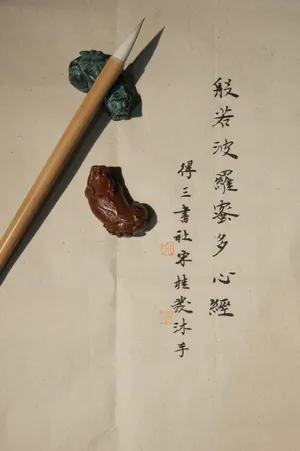 般若波羅蜜多心經
得三書社宋桂裳沐手